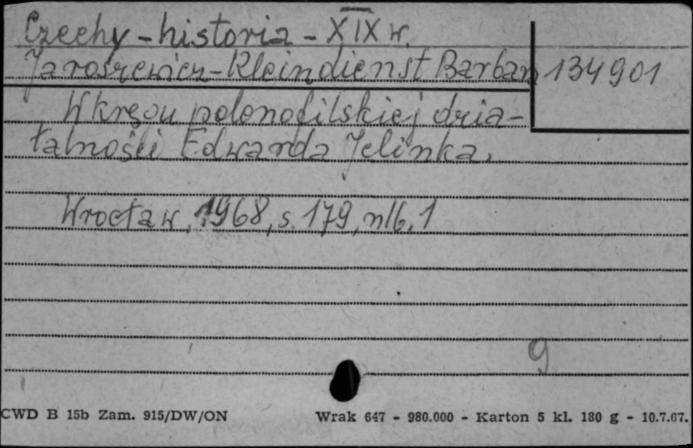 Czechy - historia - XIX w.
Jaroszewicz-Kleindienst Barbara
134901
W kręgu polonofilskiej dzia-
łalności Edwarda Jelinka.
Wrocław, 1968, s. 179, nlb. 1
9
CWD B 15b Zam. 915/DW/ON
Wrak 647 - 980.000 - Karton 5 kl. 180 g - 10.7.67.